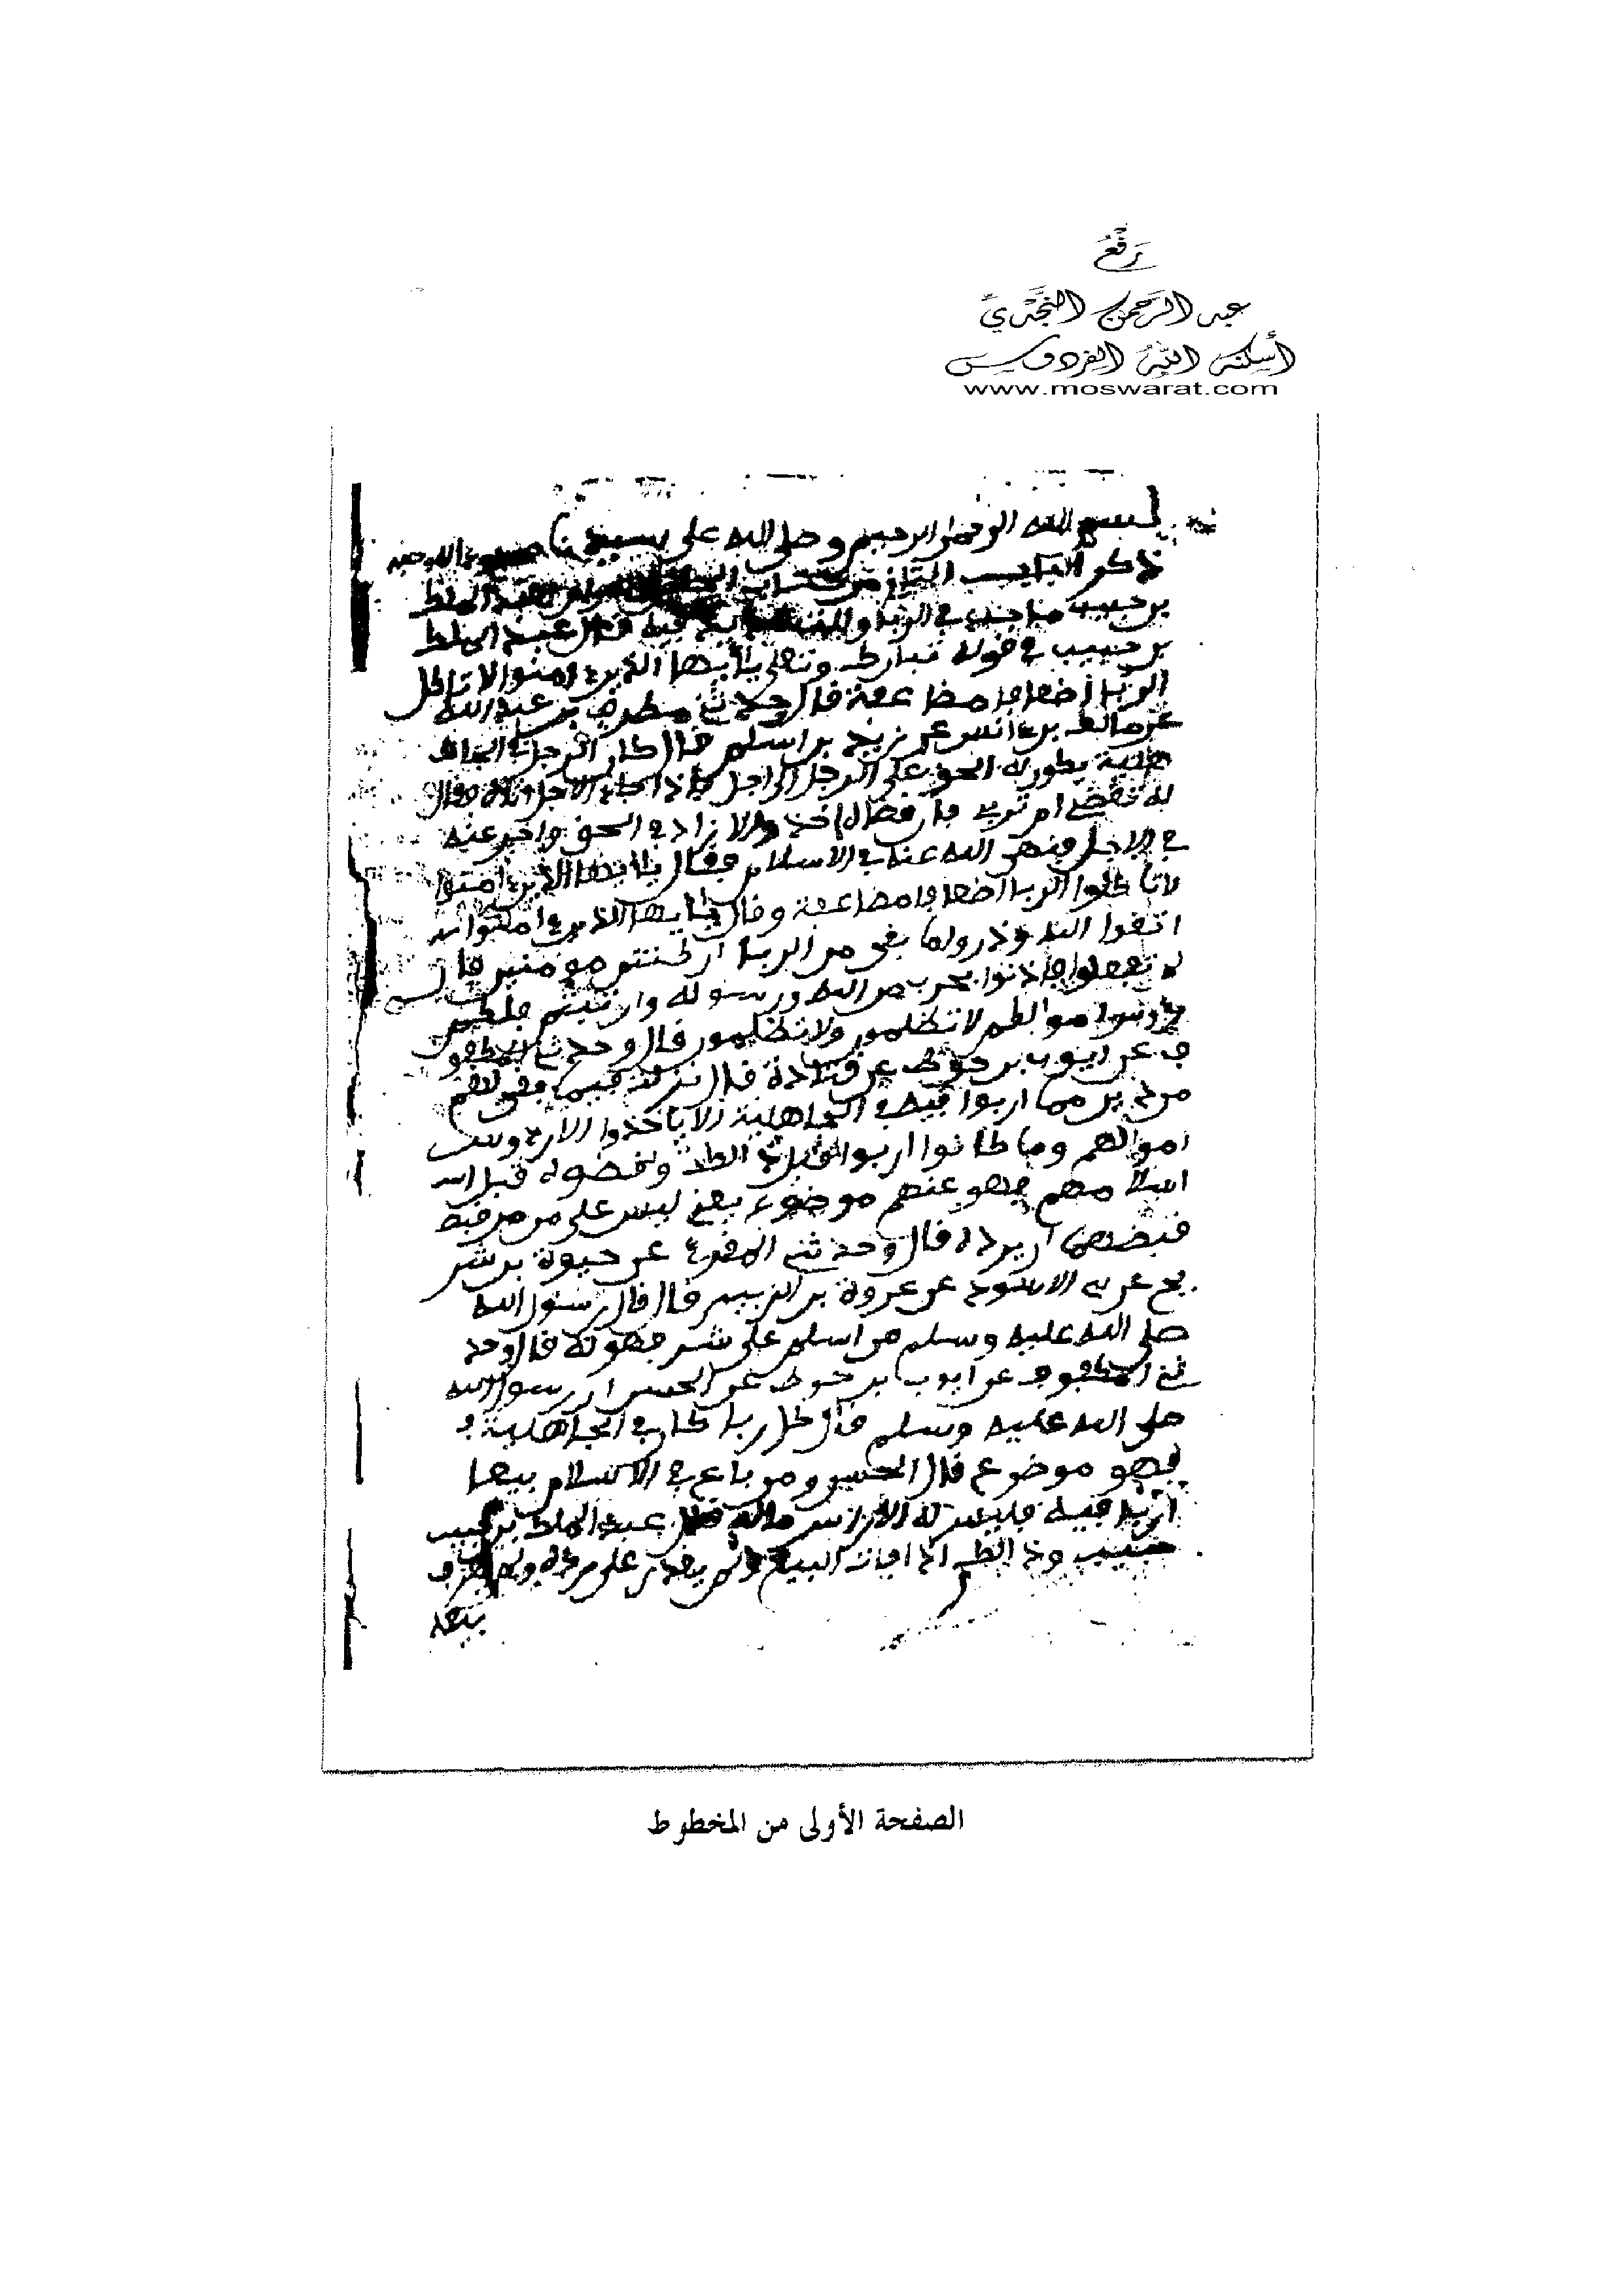 رَفْعُ
عبد الرحمن النجدي
أسكنه الله الفردوس
www.moswarat.com
بسم الله الرحمن الرحيم وصلى الله على
ذكر
بن حبيب ما جاء في الربا فيه قال عبد الملك
بن حبيب في قوله تبارك وتعلى يا أيها الذين ءامنوا لا تاكل
الربا أضعافا مضاعفة قال وحدثني مطرف بن عبد الله
عن مالك بن انس عن زيد بن اسلم قال كان الرجل في الجاه
هلية يكون له الحق على الرجل الى اجل فإذا الاجل فقال
له تقضي ام تربي فان قضا اخذ والا زاد في الحق واخر عنه
في الاجل فنهى الله عنه في الاسلام فقال يا ايها الذين امنوا
لا تاكلوا الربا اضعافا مضاعفة وقال يا ايها الذين امنوا
اتقوا الله وذروا ما بقى من الربا ان كنتم مومنين فان
لم تفعلوا فاذنوا بحرب من الله ورسوله وان تبتم فلكم
موالكم لا تظلمون ولا تظلمون قال وحدثني المكفو
ف عن ايوب بن خوط عن قتادة قال نزلت
من دين مما اربوا فيه في الجاهلية الا ياخذوا الا روس
اموالهم وما كانوا اربوا قبل ذلك وتقضوه قبل اس
اسلامهم فهو عنهم موضوع يعني ليس على من قبضه
فبضه ان يرده قال وحدثني المقرئ عن حيوة بن شر
يح عن الاسود عن عروة بن الزبير قال قال رسول الله
صلى الله عليه وسلم من اسلم على شيء فهو له قال وحد
ثني المكفوف عن ايوب بن خوط عن الحسن ان رسول الله
صلى الله عليه وسلم قال كل ربا كان في الجاهلية ف
فهو موضوع قال الحسن ومن باع في الاسلام بيعا
اربا فيه فليس له الا راس ماله قال عبد الملك بن حبيب
حبيب وذالك اذا فات البيع ولم يقدر على رده
بيعه
الصفحة الأولى من المخطوط